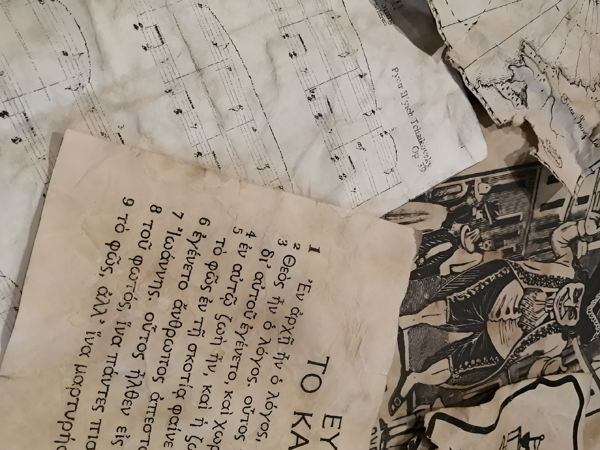 Pyotr Il'yich Tchaikovsky
Op. 39
ΕΥ
ΤΟ ΚΑ
1 Ἐν ἀρχῇ ἦν ὁ λόγος,
2 Θεὸς ἦν ὁ λόγος, οὗτος
3 δι' αὐτοῦ ἐγένετο, καὶ χωρ
4 ἐν αὐτῷ ζωὴ ἦν, καὶ ἡ ζω
5 τὸ φῶς ἐν τῇ σκοτίᾳ φαίνε
6 ἐγένετο ἄνθρωπος ἀπεστα
7 Ἰωάννης· οὗτος ἦλθεν εἰς
8 τοῦ φωτός, ἵνα πάντες πισ
9 τὸ φῶς, ἀλλ' ἵνα μαρτυρήσ